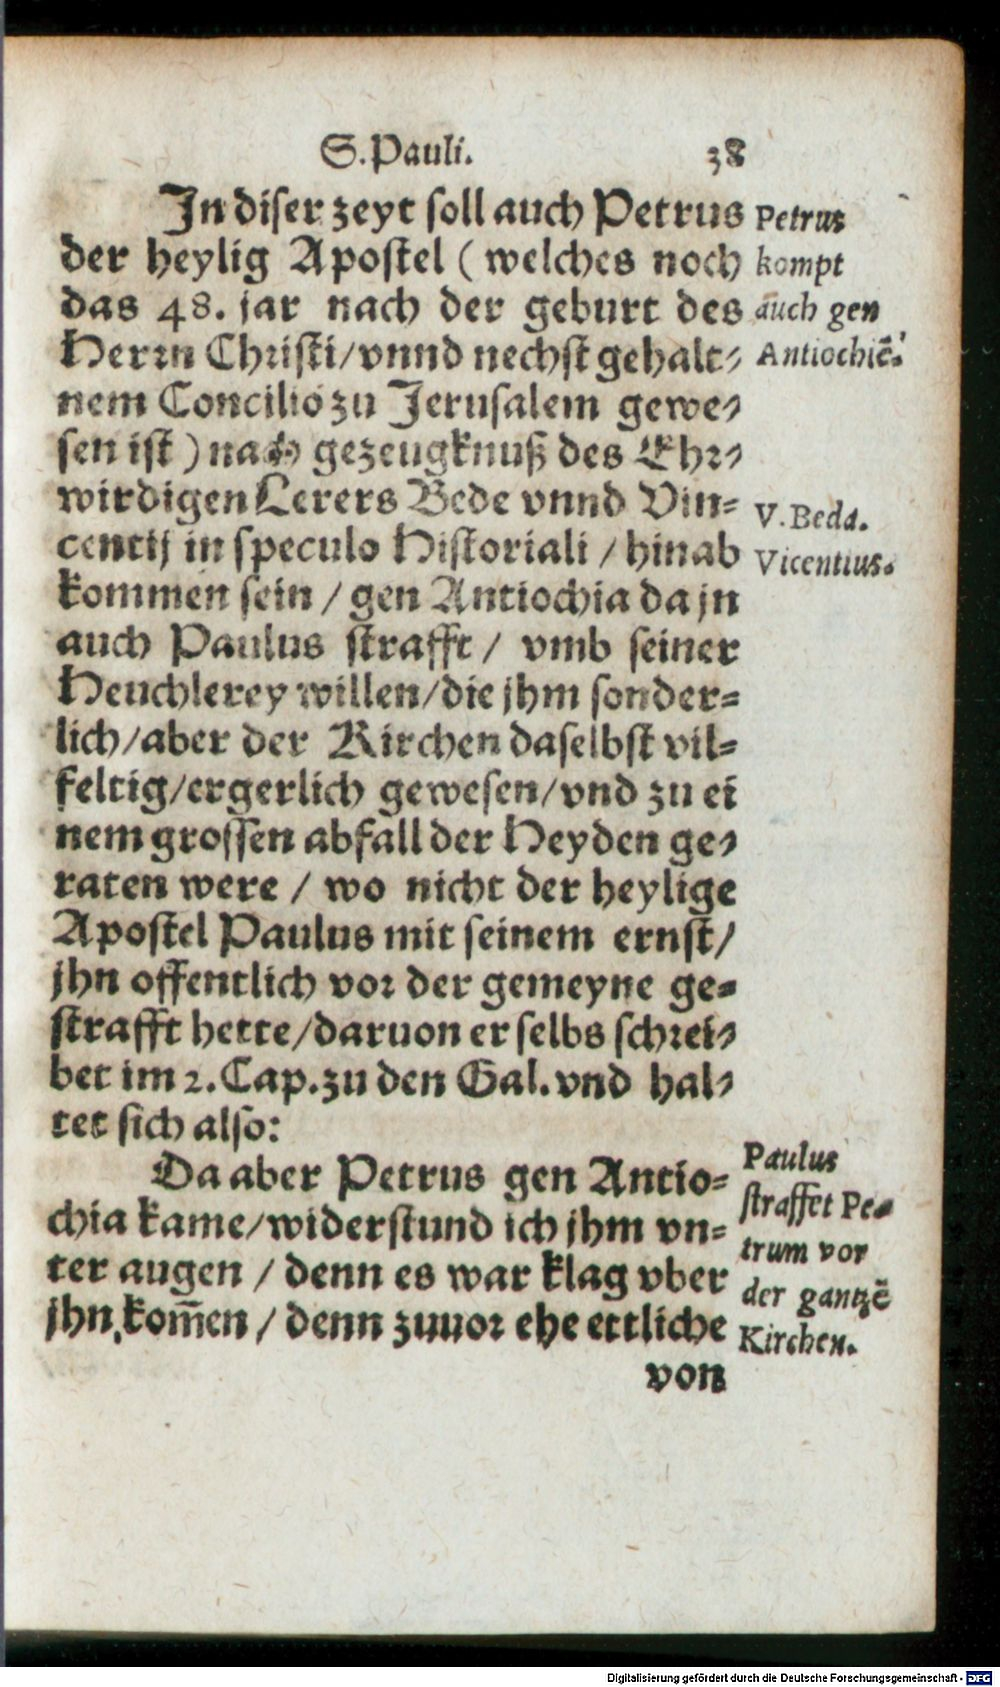 S. Pauli. 38
In diser zeyt soll auch Petrus
der heylig Apostel ( welches noch
das 48. jar nach der geburt des
Herrn Christi/vnnd nechst gehalt-
nem Concilio zu Jerusalem gewe-
sen ist ) nach gezeugknuß des Ehr-
wirdigen Lerers Bede vnnd Vin-
centij in speculo Historiali / hinab
kommen sein / gen Antiochia da jn
auch Paulus strafft / vmb seiner
Heuchlerey willen/die jhm sonder-
lich/aber der Kirchen daselbst vil-
feltig/ergerlich gewesen/vnd zu ei
nem grossen abfall der Heyden ge-
raten were / wo nicht der heylige
Apostel Paulus mit seinem ernst/
jhn offentlich vor der gemeyne ge-
strafft hette/daruon er selbs schrei-
bet im 2. Cap. zu den Gal. vnd hal-
tet sich also:
Da aber Petrus gen Antio-
chia kame/widerstund ich jhm vn-
ter augen / denn es war klag vber
jhn kom̄en / denn zuuor ehe ettliche
von
Petrus
kompt
auch gen
Antiochiē.
V. Beda.
Vicentius.
Paulus
straffet Pe-
trum vor
der gantzē
Kirchen.
Digitalisierung gefördert durch die Deutsche Forschungsgemeinschaft - DFG